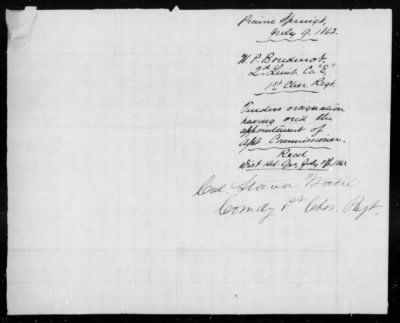 Prairie Springs,
July 9. 1863.
W. P. Boudinot,
2d Lieut. Co. "E,"
1st Cher. Regt.
Tenders resignation
having recd the
appointment of
Commissioner.
Recd
July
Col.
Comdg 1st Cher. Regt.